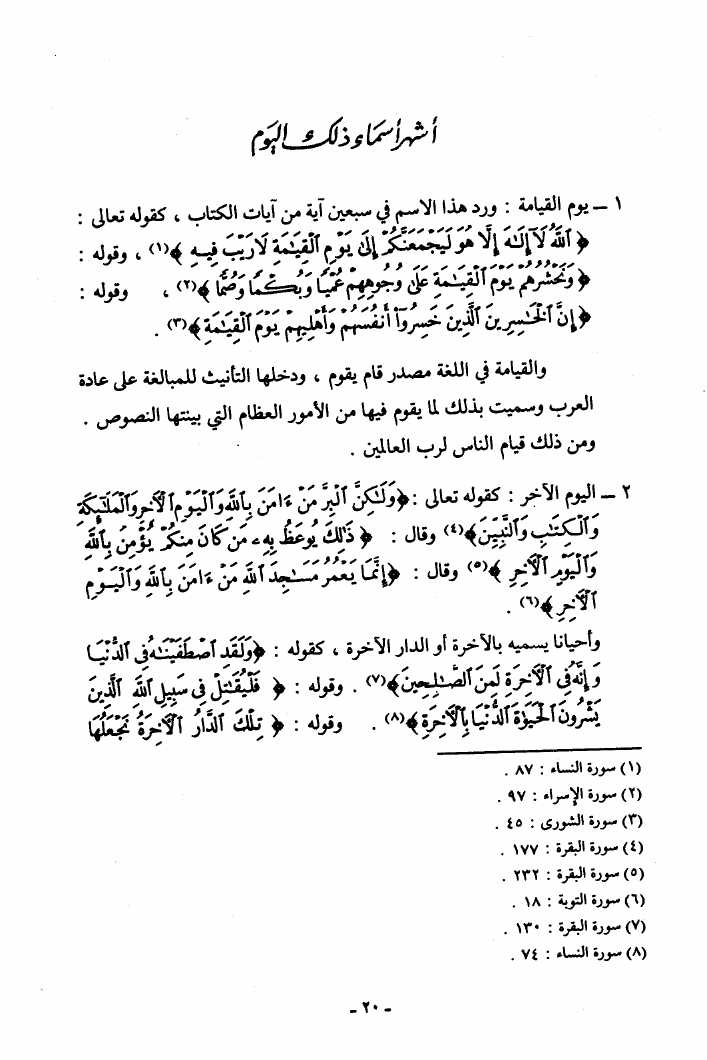 أشهر أسماء ذلك اليوم
١ ــ يوم القيامة : ورد هذا الاسم في سبعين آية من آيات الكتاب ، كقوله تعالى :
﴿ ٱللَّهُ لَآ إِلَٰهَ إِلَّا هُوَ لَيَجْمَعَنَّكُمْ إِلَىٰ يَوْمِ ٱلْقِيَٰمَةِ لَا رَيْبَ فِيهِ ﴾(١) ، وقوله :
﴿ وَنَحْشُرُهُمْ يَوْمَ ٱلْقِيَٰمَةِ عَلَىٰ وُجُوهِهِمْ عُمْيًا وَبُكْمًا وَصُمًّا ﴾(٢) ، وقوله :
﴿ إِنَّ ٱلْخَٰسِرِينَ ٱلَّذِينَ خَسِرُوٓا۟ أَنفُسَهُمْ وَأَهْلِيهِمْ يَوْمَ ٱلْقِيَٰمَةِ ﴾(٣) .
والقيامة في اللغة مصدر قام يقوم ، ودخلها التأنيث للمبالغة على عادة
العرب وسميت بذلك لما يقوم فيها من الأمور العظام التي بينتها النصوص .
ومن ذلك قيام الناس لرب العالمين .
٢ ــ اليوم الآخر : كقوله تعالى : ﴿وَلَٰكِنَّ ٱلْبِرَّ مَنْ ءَامَنَ بِٱللَّهِ وَٱلْيَوْمِ ٱلْأَخِرِ وَٱلْمَلَٰٓئِكَةِ
وَٱلْكِتَٰبِ وَٱلنَّبِيِّنَ﴾(٤) وقال : ﴿ ذَٰلِكَ يُوعَظُ بِهِۦ مَن كَانَ مِنكُمْ يُؤْمِنُ بِٱللَّهِ
وَٱلْيَوْمِ ٱلْأَخِرِ ﴾(٥) وقال : ﴿إِنَّمَا يَعْمُرُ مَسَٰجِدَ ٱللَّهِ مَنْ ءَامَنَ بِٱللَّهِ وَٱلْيَوْمِ
ٱلْأَخِرِ ﴾(٦) .
وأحيانا يسميه بالآخرة أو الدار الآخرة ، كقوله : ﴿وَلَقَدِ ٱصْطَفَيْنَٰهُ فِى ٱلدُّنْيَا
وَإِنَّهُۥ فِى ٱلْأَخِرَةِ لَمِنَ ٱلصَّٰلِحِينَ﴾(٧) . وقوله : ﴿ فَلْيُقَٰتِلْ فِى سَبِيلِ ٱللَّهِ ٱلَّذِينَ
يَشْرُونَ ٱلْحَيَوٰةَ ٱلدُّنْيَا بِٱلْأَخِرَةِ ﴾(٨) . وقوله : ﴿ تِلْكَ ٱلدَّارُ ٱلْأَخِرَةُ نَجْعَلُهَا
(١) سورة النساء : ٨٧ .
(٢) سورة الإسراء : ٩٧ .
(٣) سورة الشورى : ٤٥ .
(٤) سورة البقرة : ١٧٧ .
(٥) سورة البقرة : ٢٣٢ .
(٦) سورة التوبة : ١٨ .
(٧) سورة البقرة : ١٣٠ .
(٨) سورة النساء : ٧٤ .
- ٢٠ -